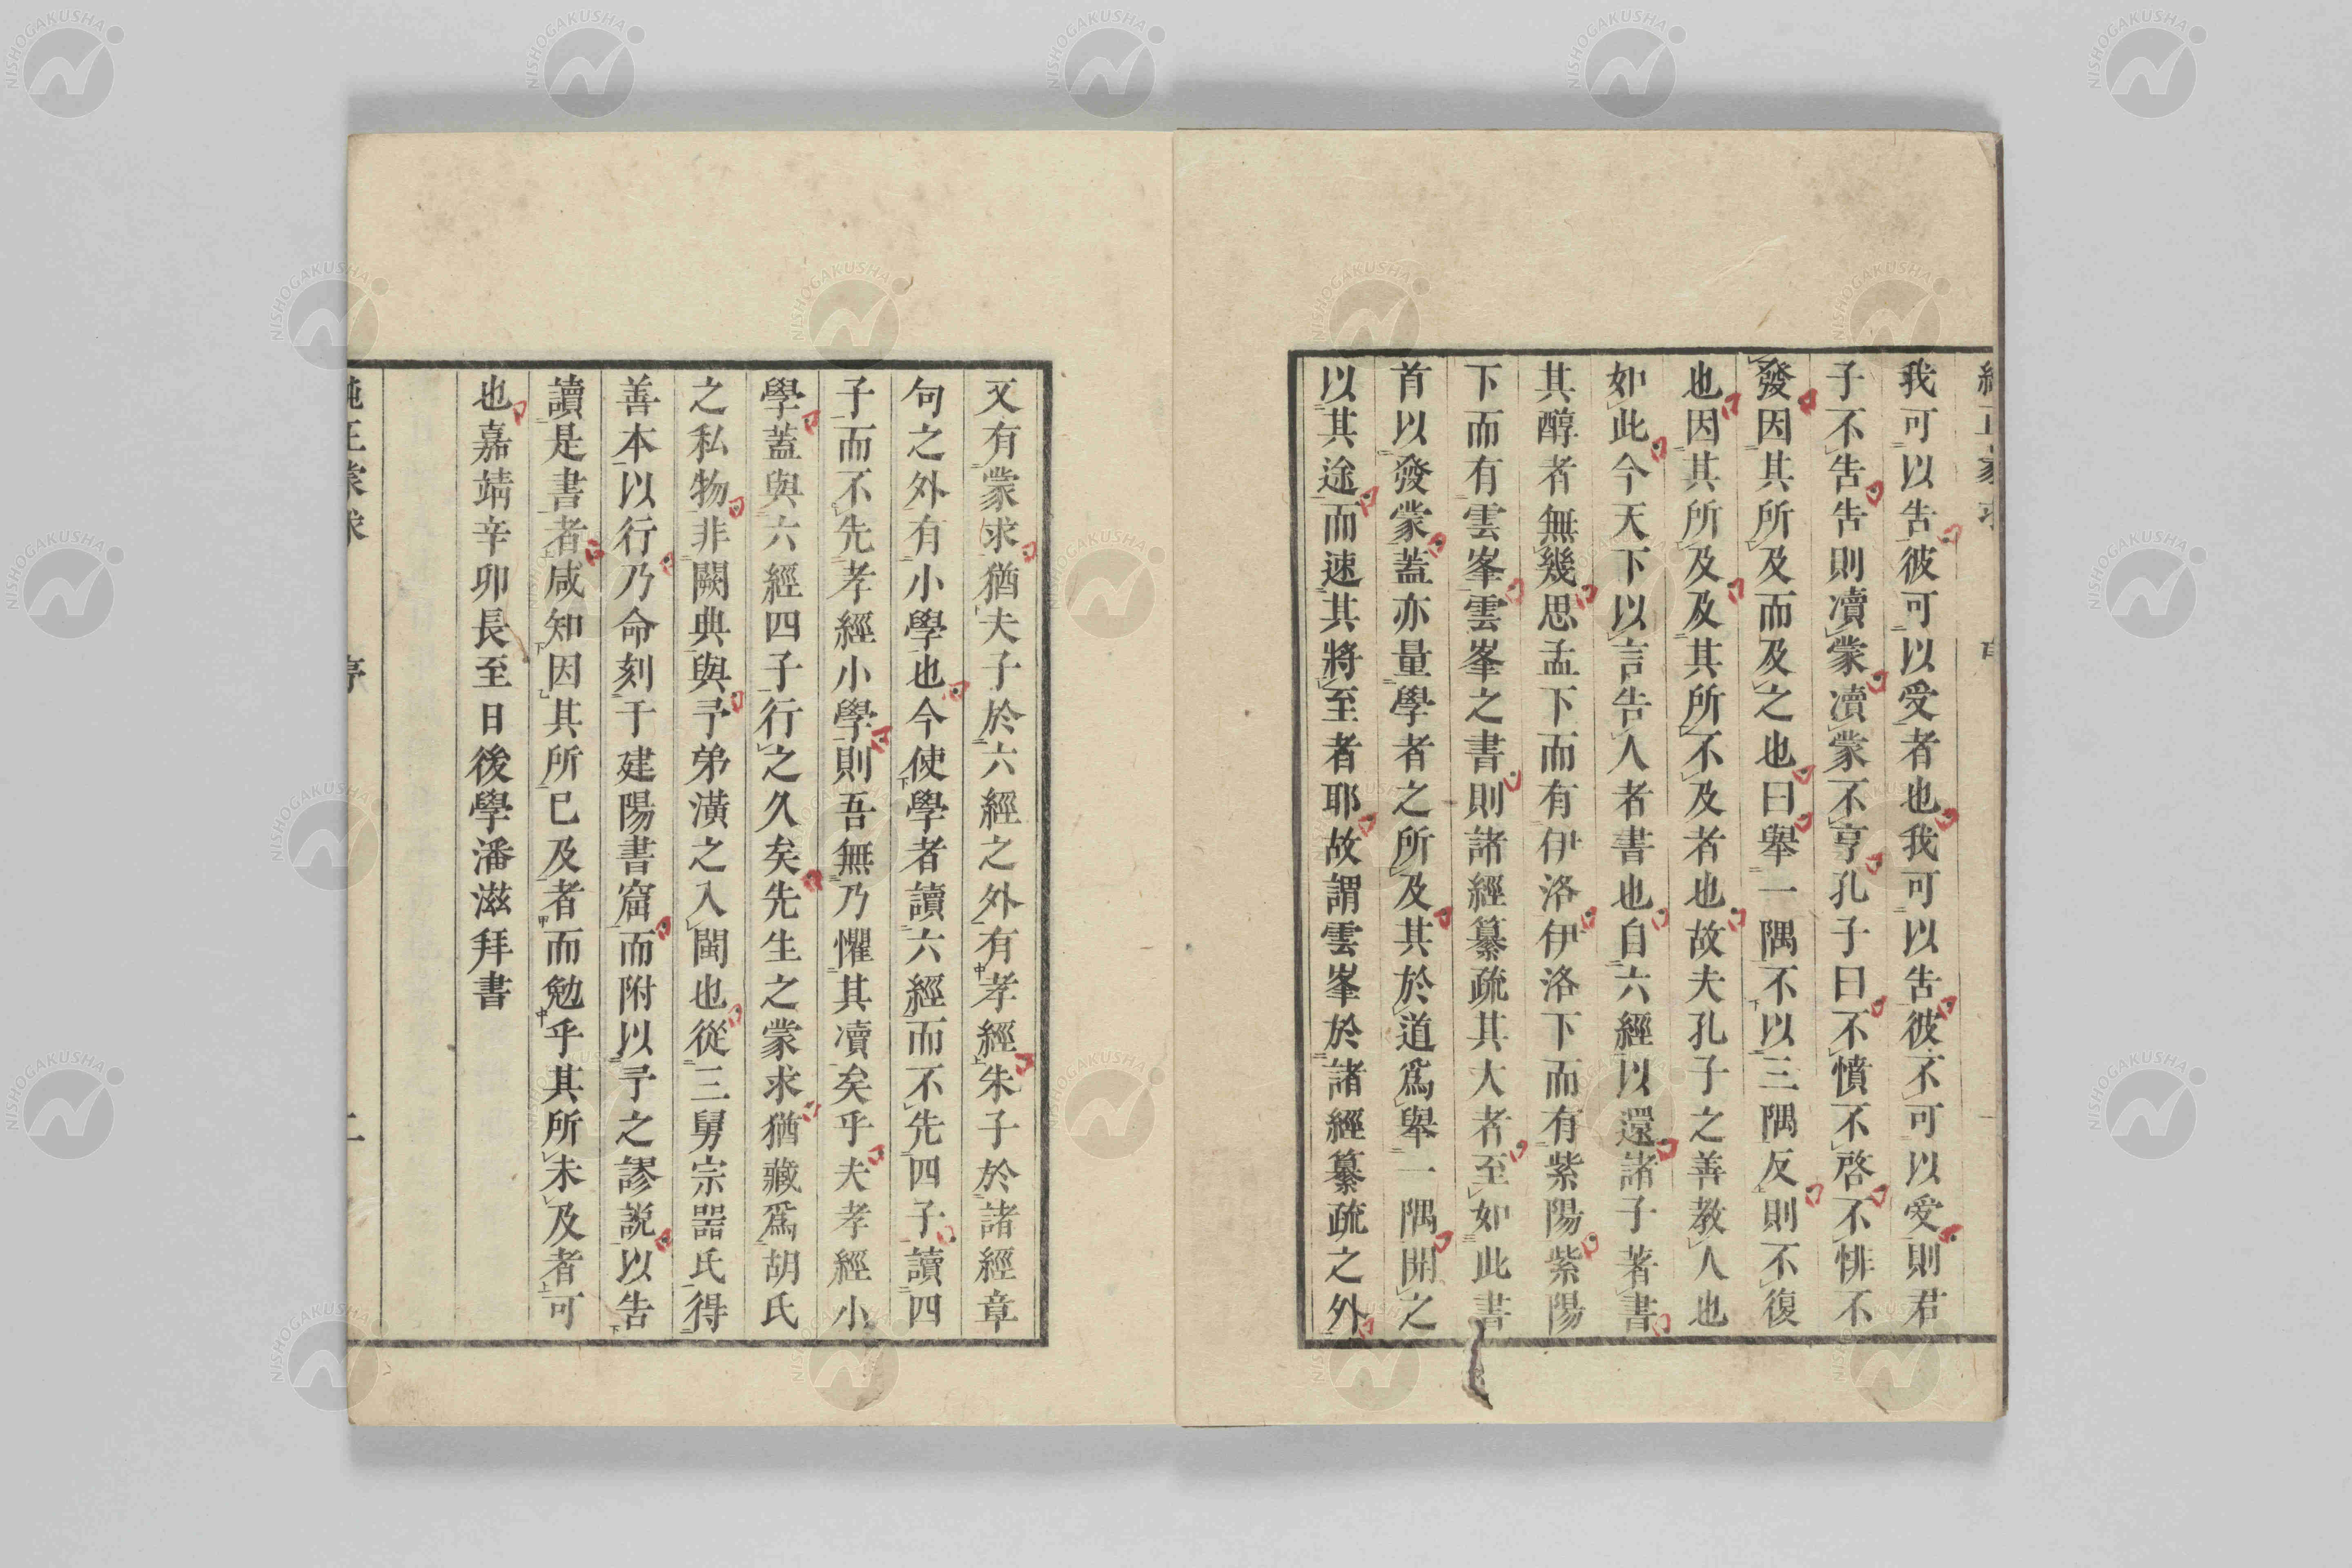 我可以告彼可以受者也我可以告彼不可以受則君
子不告告則瀆蒙瀆蒙不亨孔子曰不憤不啓不悱不
發因其所及而及之也曰舉一隅不以三隅反則不復
也因其所及及其所不及者也故夫孔子之善教人也
如此今天下以言告人者書也自六經以還諸子著書
其醇者無幾思孟下而有伊洛伊洛下而有紫陽紫陽
下而有雲峯雲峯之書則諸經纂疏其大者至如此書
首以發蒙蓋亦量學者之所及其於道爲舉一隅開之
以其途而速其將至者耶故謂雲峯於諸經纂疏之外
又有蒙求猶夫子於六經之外有孝經朱子於諸經章
句之外有小學也今使學者讀六經而不先四子讀四
子而不先孝經小學則吾無乃懼其瀆矣乎夫孝經小
學蓋與六經四子行之久矣先生之蒙求猶藏爲胡氏
之私物非闕典與予弟潢之入閩也從三舅宗器氏得
善本以行乃命刻于建陽書窟而附以予之謬説以告
讀是書者咸知因其所已及者而勉乎其所未及者可
也嘉靖辛卯長至日後學潘滋拜書
純正蒙求 序 二
NISHOGAKUSHA